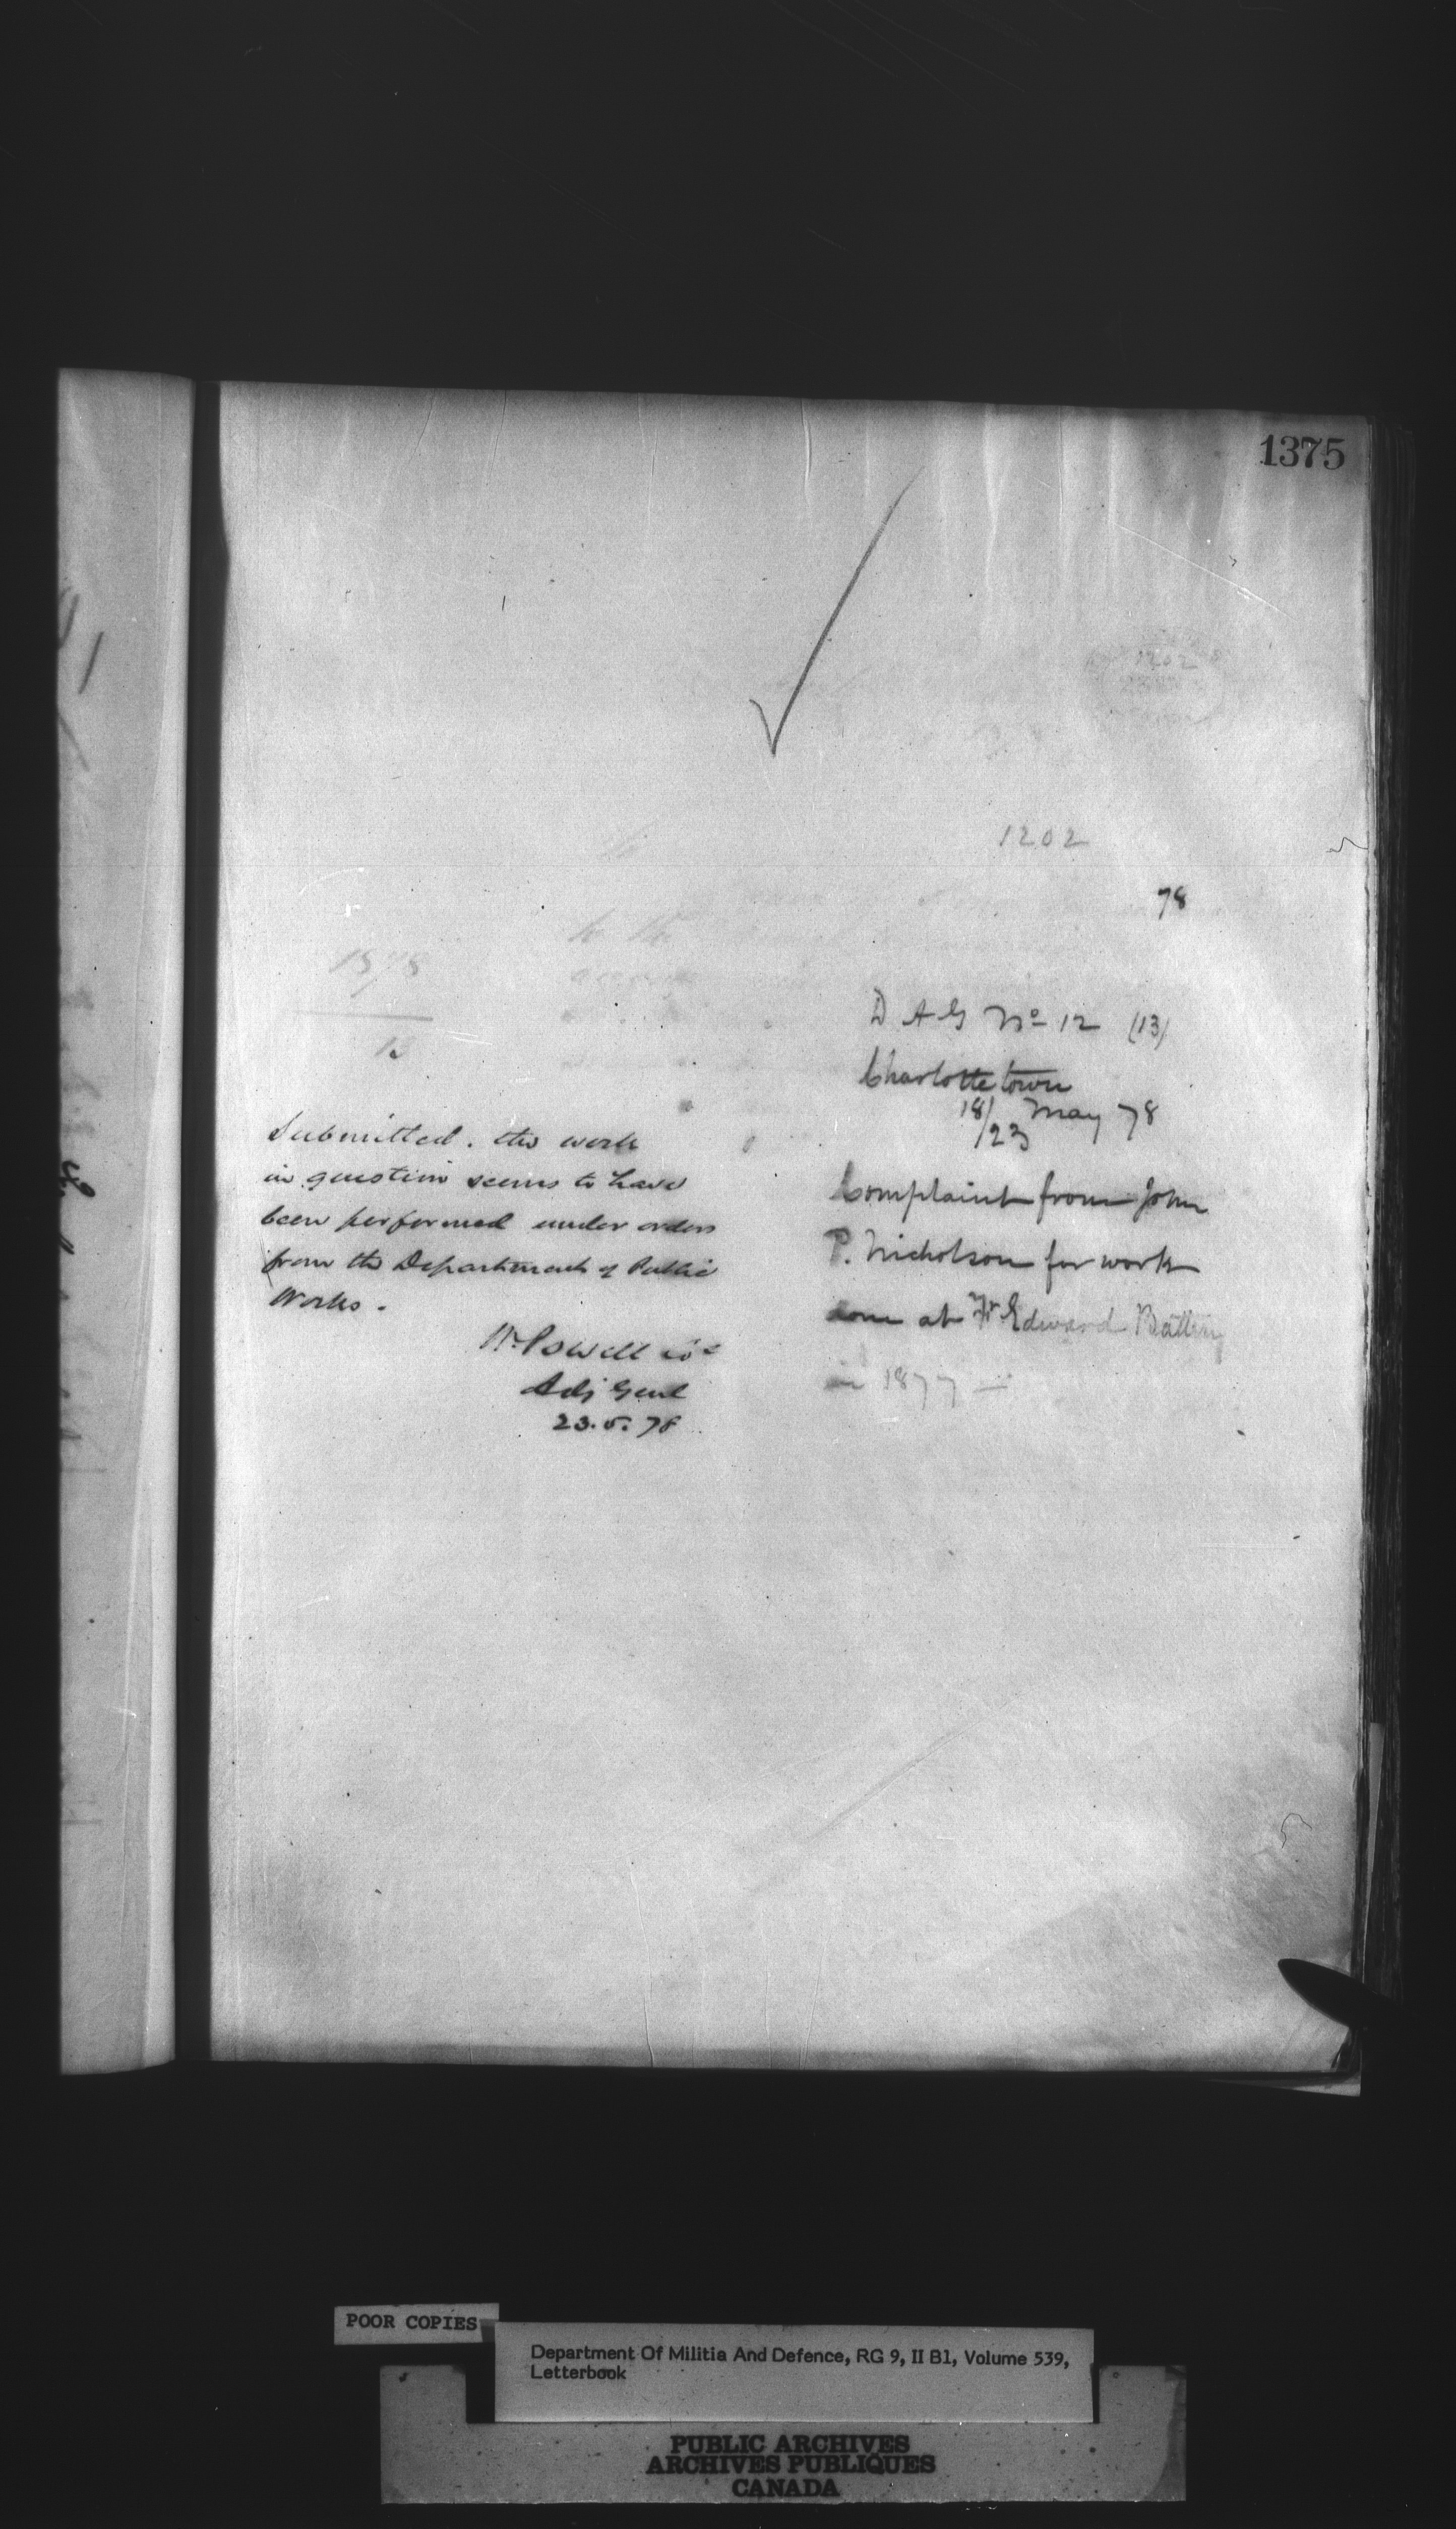 1375
1202
1202
78
D A G No 12 (13)
Charlottetown
18/23 May 78
Complaint from John
P. Nicholson for work
done at Ft Edward Battery
in 1877 —
1878
13
Submitted. the work
in question seems to have
been performed under orders
from the Department of Public
Works.
W. Powell Col
Adj Genl
23.5.78
POOR COPIES
Department Of Militia And Defence, RG 9, II B1, Volume 539,
Letterbook
PUBLIC ARCHIVES
ARCHIVES PUBLIQUES
CANADA